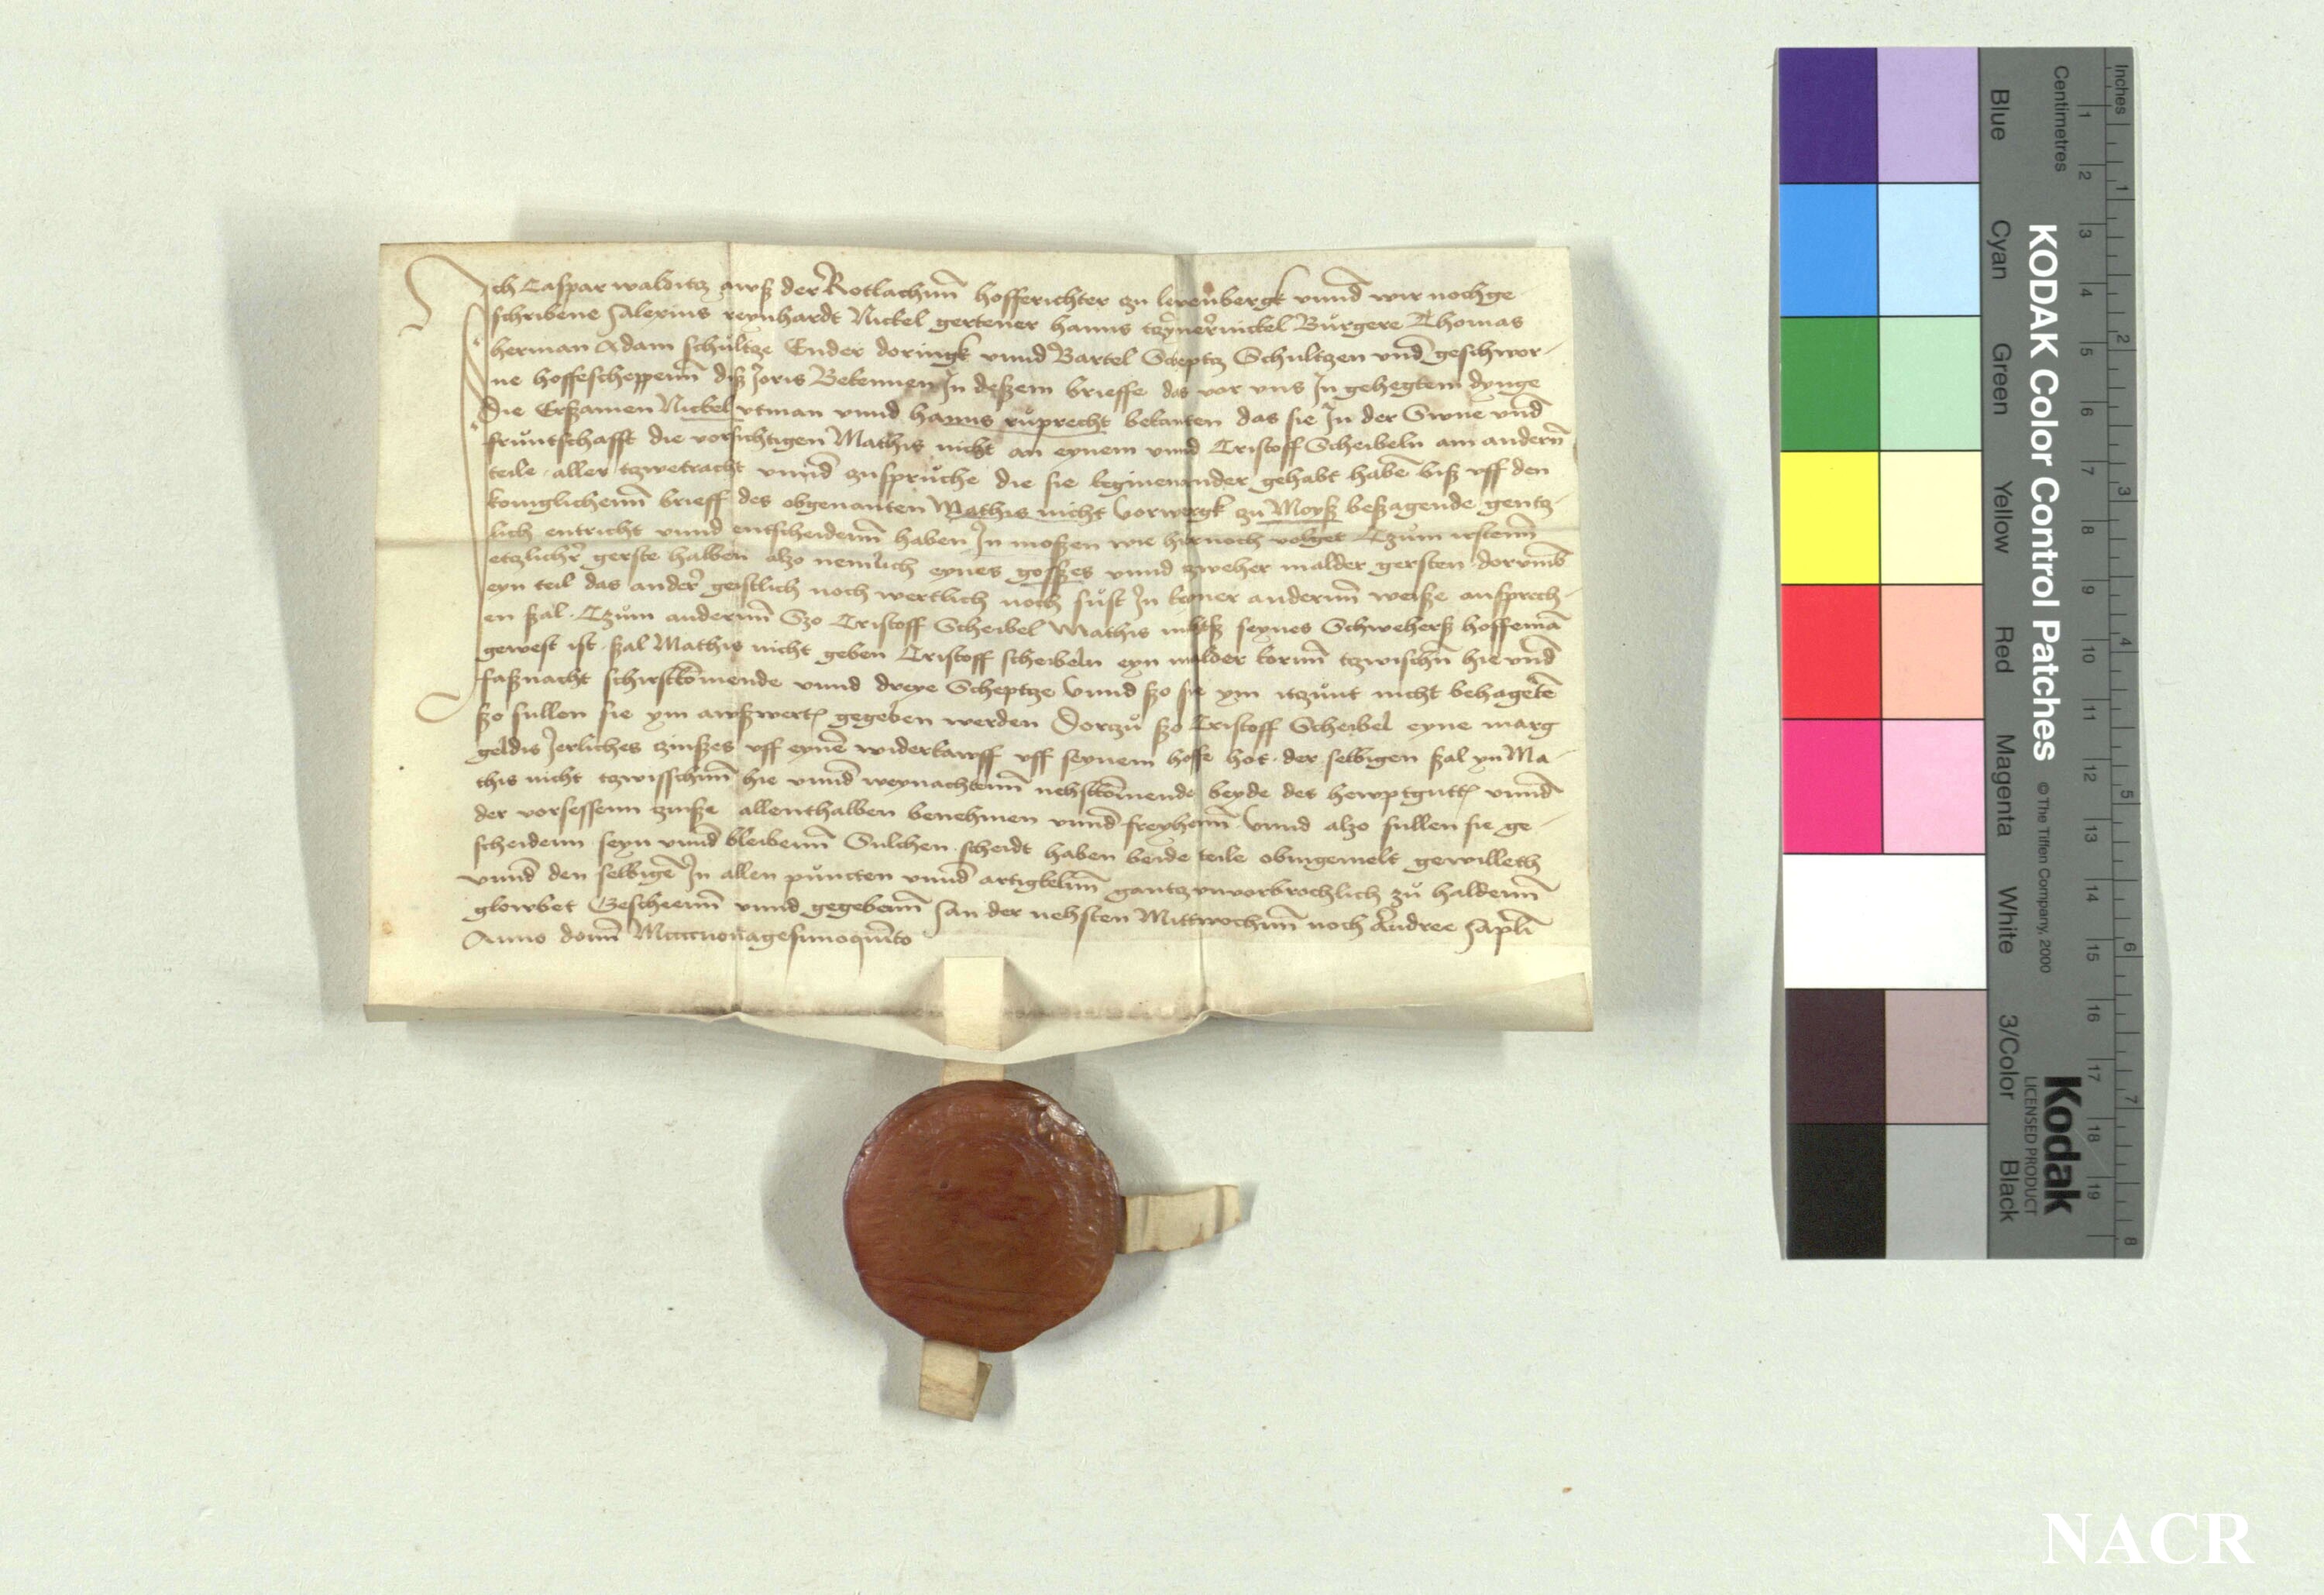 Ich Caspar walditz awß der Rotlachinn hofferichter zu lewenbergk vnnd wir nochge
schribene Alexius reynhardt Nickel gertener hanns tzeyner nickel Burgere Thomas
herman Adam schultze Ender doringk vnnd Bartel Scheptz Schultzen vnd geschwor-
ne hoffescheppenn diß Joris Bekennen In deßem brieffe das vor vns In gehegtem dynge
Die Erßamen Nickel vtman vnnd hanns ruprecht bekanten das sie In der Swne vnd
fruntschafft die vorsichtigen Mathis nicht an eynem vnnd Cristoff Scheibeln am andern
teile aller tzwetracht vnnd zuspruche die sie keginenander gehabt haben biß vff den
koniglichenn brieff des obgenanten Mathis nicht vorwergk zu Moyß beßagende gentz-
lich entricht vnnd entscheidenn haben In moßen wie hirnoch volget Czum irstenn
etzlicher gerste halben alzo nemlich eynes goßßes vnnd zweher malder gersten dorvmb
eyn teil das ander geistlich noch wertlich noch sust In keyner andernn weiße ansprech-
en ßal Czum andernn Szo Cristoff Scheibel Mathis nichtß seynes Schweherß hoffeman
gewest ist ßal Mathis nicht geben Cristoff scheibeln eyn malder kornn tzwischen hie vnd
faßnacht schirstkomende vnnd dreye Scheptze vnnd ßo sie ym itzunt nicht behageten
ßo sullen sie ym awßwert gegeben werden Dorczu ßo Cristoff Scheibel eyne marg
geldis Jerliches zinßes vff eynen widerkawff vff seynem hoffe hot der selbigen ßal yn Ma-
this nicht tzwisschnn hie vnnd weynachtenn nehstkomende beyde des hewptgutts vnnd
der vorsessenn zinße allenthalben benehmen vnnd freyhenn vnnd alzo sullen sie ge-
scheidenn seyn vnnd bleibenn Sulchen scheidt haben beide teile obingemelt gewilleth
vnnd den selbigen In allen puncten vnnd artigkelnn gantz vnvorbrochlich zu haldenn
glowbet Gescheenn vnnd gegebenn An der nehsten Mittwochnn noch Andree Apli
Anno domi Mccccnonagesimoquinto
Inches
Centimetres
KODAK Color Control Patches
© The Tiffen Company, 2000
Kodak
LICENSED PRODUCT
Blue
Cyan
Green
Yellow
Red
Magenta
White
3/Color
Black
1 2 3 4 5 6 7 8 9 10 11 12 13 14 15 16 17 18 19
1 2 3 4 5 6 7 8
NACR